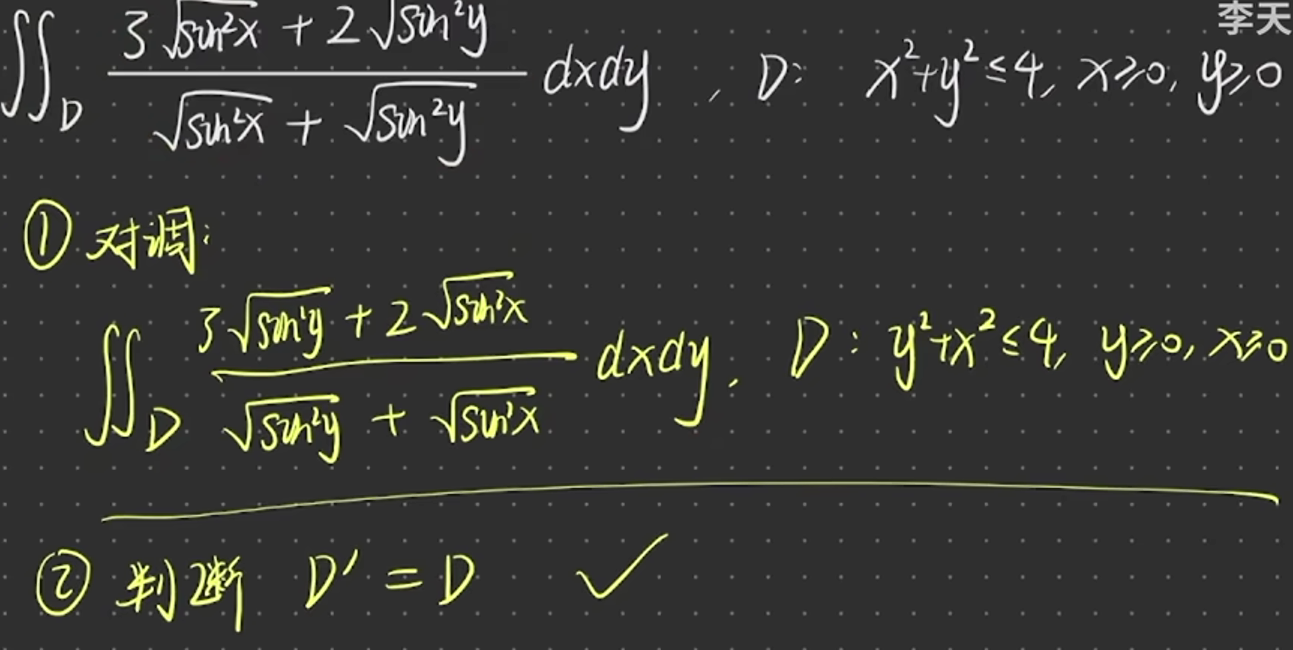 李天
∬_D (3√sin²x + 2√sin²y)/(√sin²x + √sin²y) dxdy , D: x²+y²≤4, x≥0, y≥0
① 对调:
∬_D (3√sin²y + 2√sin²x)/(√sin²y + √sin²x) dxdy , D: y²+x²≤4, y≥0, x≥0
② 判断 D′ = D ✓